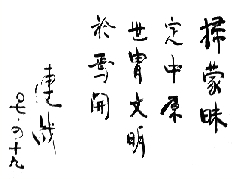 掃蒙昧
定中原
世胄文明
於焉開
連戰
十九